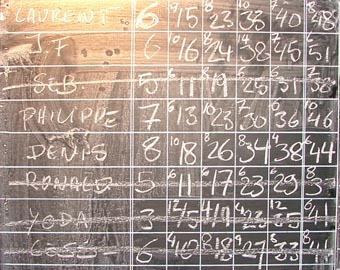 LAURENT 6 9/15 8/23 10/33 7/40 8/48
JF 6 10/16 8/24 14/38 7/45 6/51
SEB 5 6/11 8/19 6/25 6/31 7/38
PHILIPPE 7 6/13 10/23 7/30 6/36 10/46
DENIS 8 10/18 8/26 8/34 4/38 6/44
RONALD 5 6/11 6/17 6/23 6/29 8/37
YODA 3
6 4/10 8/18 9/27 6/33 8/41